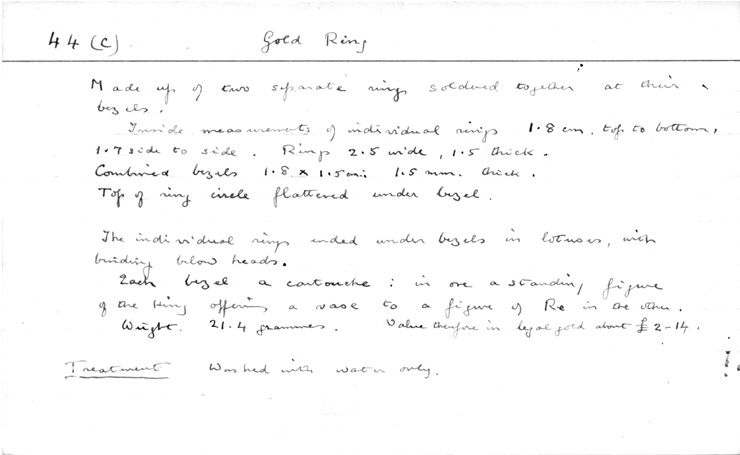 44 (c) Gold Ring
Made up of two separate rings soldered together at their
bezels.
Inside measurements of individual rings 1.8 cm. top to bottom,
1.7 side to side. Rings 2.5 wide, 1.5 thick.
Combined bezels 1.8 x 1.5 cm: 1.5 mm. thick.
Top of ring circle flattered under bezel.
The individual rings ended under bezels in lotuses, with
binding below heads.
Each bezel a cartouche: in one a standing figure
of the King offering a vase to a figure of Re in the other.
Weight. 21.4 grammes. Value therefore in legal gold about £2-14.
Treatment Washed with water only.